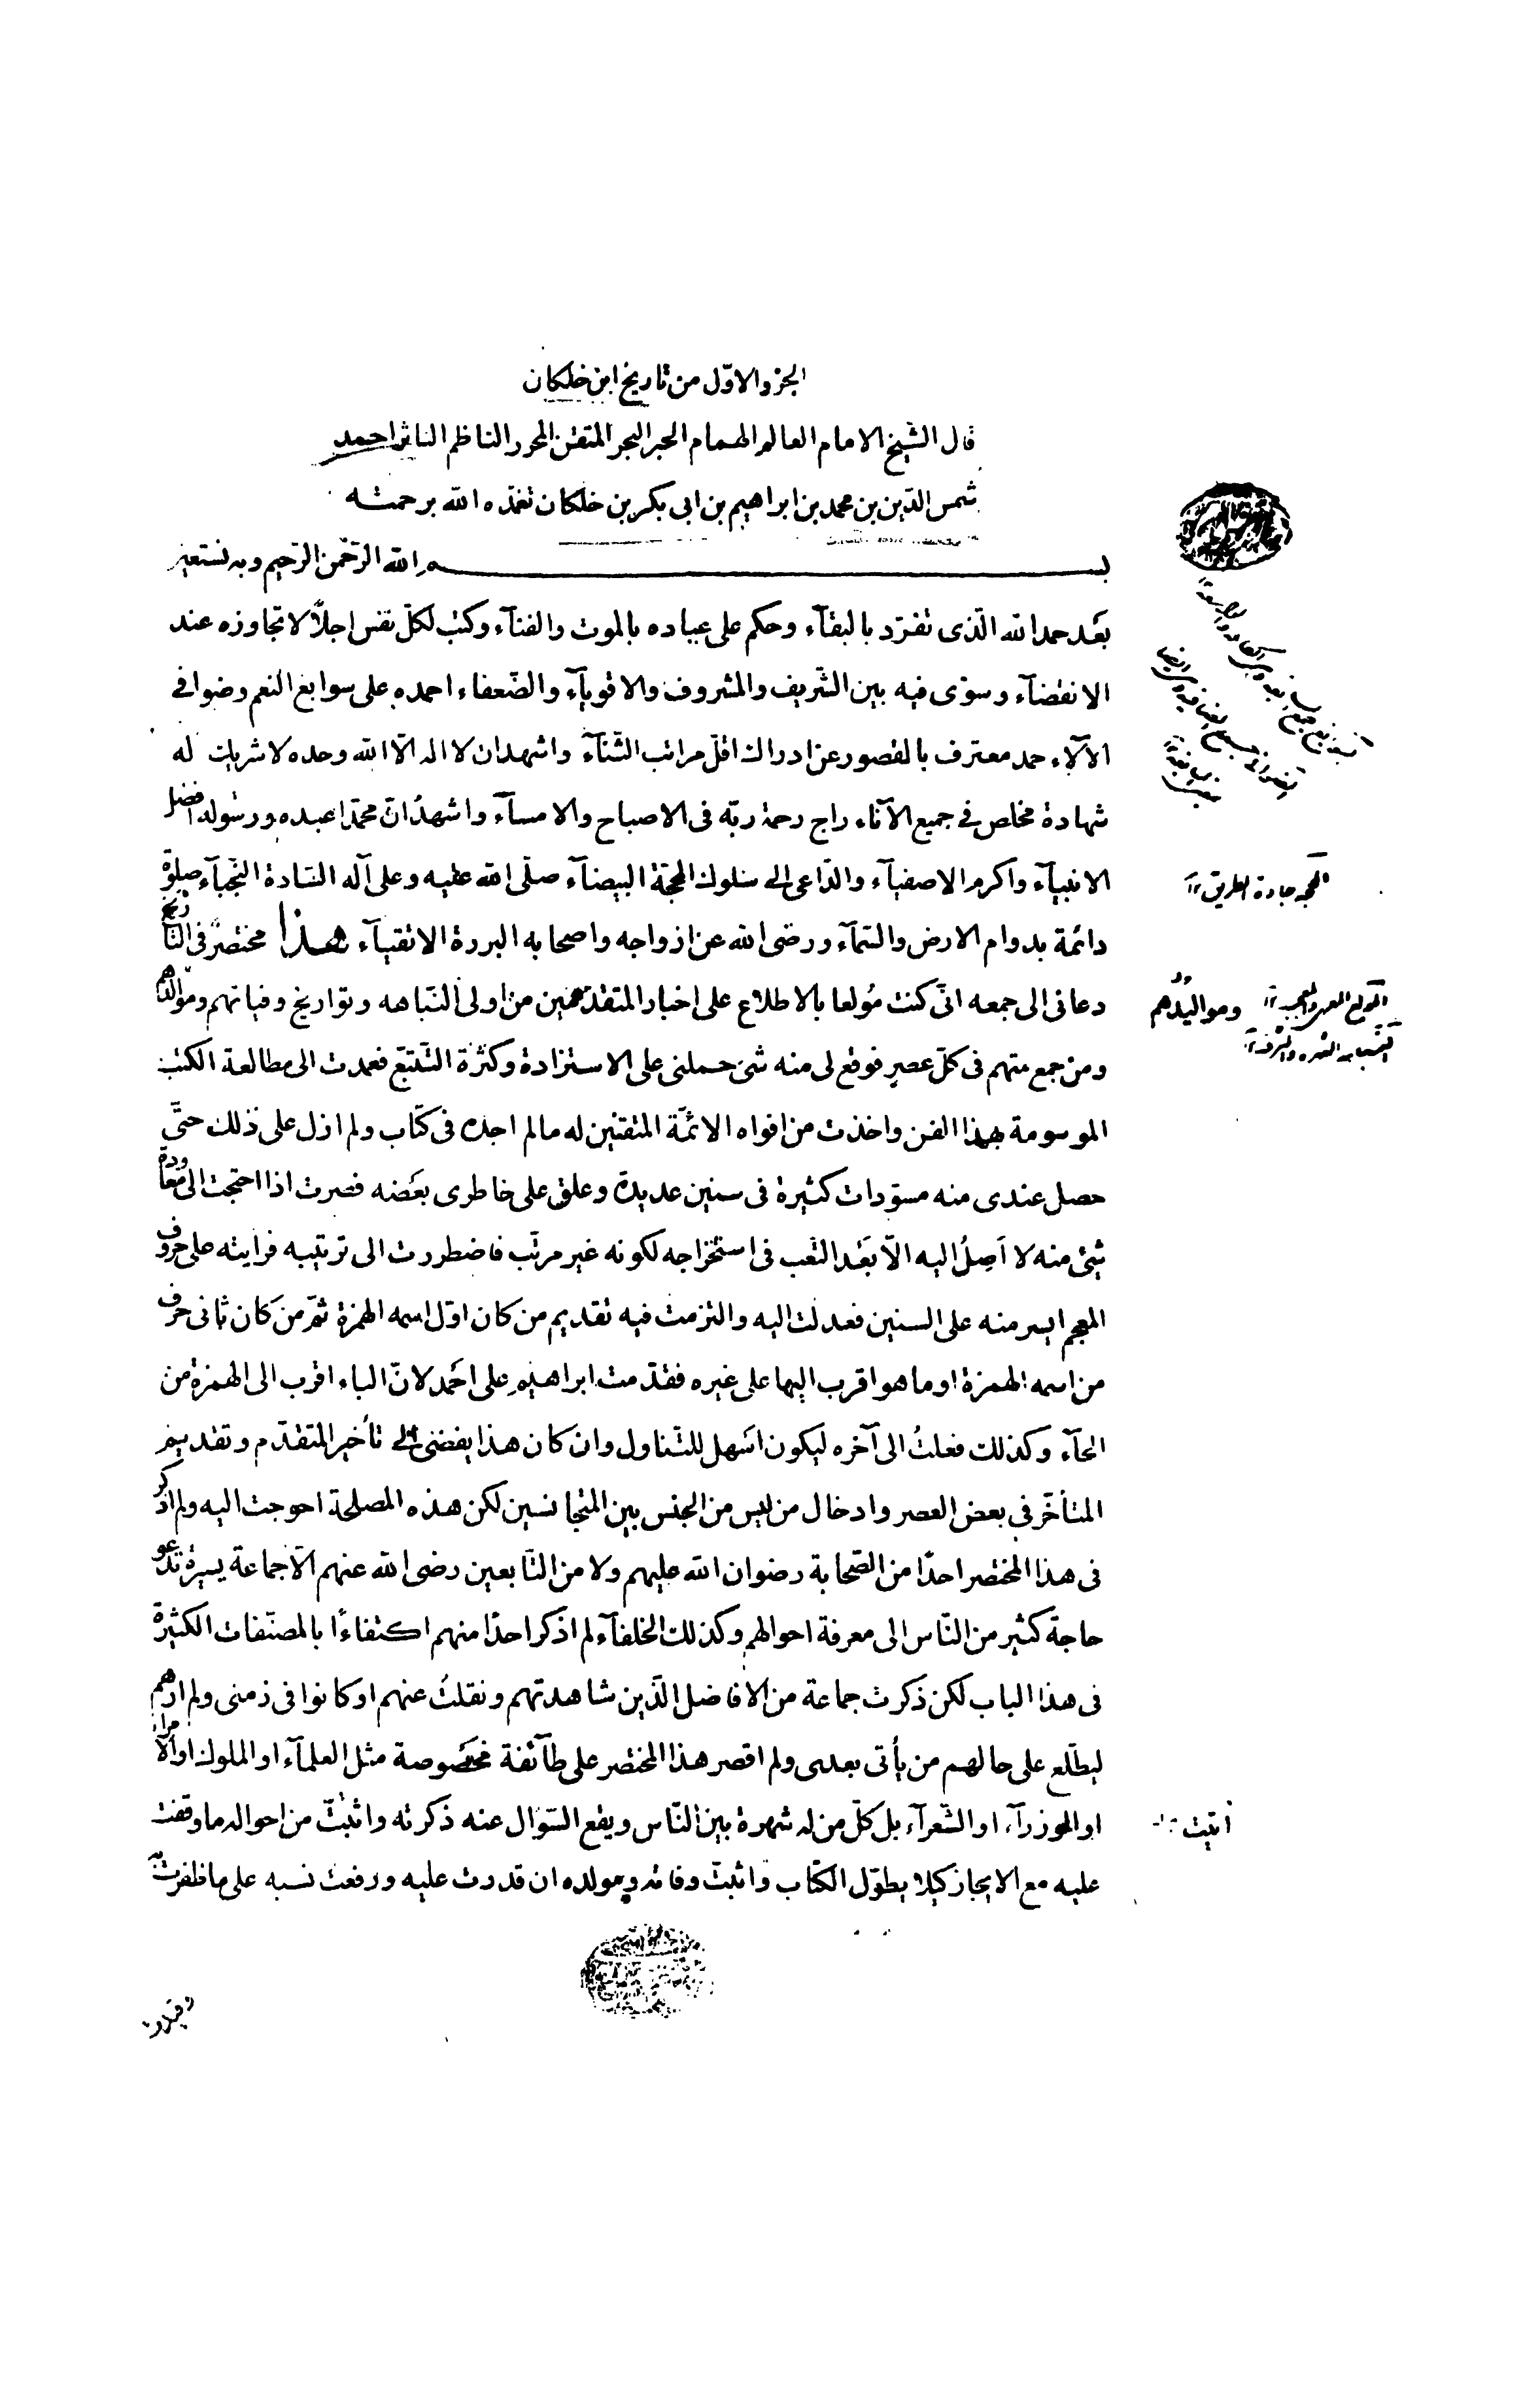 الجزء الاوّل من تاريخ ابن خلكان
قال الشّيخ الامام العالم الهمام الحبر البحر المتقن المحرر الناظم الناثر احمد
شمس الدّين بن محمد بن ابراهيم بن ابى بكر بن خلكان تغمّده الله برحمته
بسم الله الرّحمن الرّحيم وبه نستعين
بعد حمد الله الّذى تفرّد بالبقآء وحكم على عباده بالموت والفنآء وكتب لكلّ نفس اجلاً لا تجاوزه عند
الانقضآء وسوّى فيه بين الشّريف والمشروف والاقويآء والضّعفاء احمده على سوابغ النعم وضوافى
الآلآء حمد معترف بالقصور عن ادراك اقلّ مراتب الثّنآء واشهد ان لا اله الّا الله وحده لا شريك له
شهادة مخلص فى جميع الآناء راج رحمة ربّه فى الاصباح والامسآء واشهدُ انّ محمّدا عبده ورسوله افضل
الانبيآء واكرم الاصفيآء والدّاعى الى سلوك المحجّة البيضآء صلّى الله عليه وعلى آله السّادة النّجبآء صلوة
دائمة بدوام الارض والسّمآء ورضى الله عن ازواجه واصحابه البررة الاتقيآء هذا مختصرٌ فى التاريخ
دعانى الى جمعه انّى كنت مُولعا بالاطلاع على اخبار المتقدّمين من اولى النّباهه وتواريخ وفياتهم وموالدهم
ومن جمع منهم فى كلّ عصرٍ فوقع لى منه شئ حملنى على الاستزادة وكثرة التّتبّع فعمدت الى مطالعة الكتب
الموسومة بهذا الفن واخذت من افواه الائمّة المتقنين له مالم اجده فى كتاب ولم ازل على ذلك حتّى
حصل عندى منه مسوّدات كثيرة فى سنين عديدة وعلق على خاطرى بعضه فصرت اذا احتجت الى معاودة
شئ منه لا اَصِلُ اليه الّا بعد التعب فى استخراجه لكونه غير مرتّب فاضطررت الى ترتيبه فرايته على حروف
المعجم ايسر منه على السنين فعدلت اليه والتزمت فيه تقديم من كان اوّل اسمه الهمزة ثمّ من كان ثانى حرف
من اسمه الهمزة او ما هو اقرب اليها على غيره فقدّمت ابراهيم على احمد لانّ الباء اقرب الى الهمزة من
الحآء وكذلك فعلتُ الى آخره ليكون اسهل للتّناول وان كان هذا يفضى الى تأخير المتقدّم وتقديم
المتأخّر فى بعض العصر وادخال من ليس من الجنس بين المتجانسين لكن هذه المصلحة احوجت اليه ولم اذكر
فى هذا المختصر احدًا من الصّحابة رضوان الله عليهم ولا من التّابعين رضى الله عنهم الّا جماعة يسيرة تدعو
حاجة كثير من النّاس الى معرفة احوالهم وكذلك الخلفآء لم اذكر احدًا منهم اكتفاءًا بالمصنّفات الكثيرة
فى هذا الباب لكن ذكرت جماعة من الافاضل الّذين شاهدتهم ونقلتُ عنهم او كانوا فى زمنى ولم ارهم
ليطّلع على حالهم من يأتى بعدى ولم اقصر هذا المختصر على طآئفة مخصوصة مثل العلمآء او الملوك او الامراء
او الوزرآء او الشّعرآء بل كلّ من له شهرة بين النّاس ويقع السّؤال عنه ذكرته واثبتّ من احواله ما وقفت
عليه مع الايجاز كيلا يطوّل الكتاب واثبتّ وفاته ومولده ان قدرت عليه ورفعت نسبه على ما ظفرت به
المحجه جادة الطريق
ومواليدُهم
أتيت